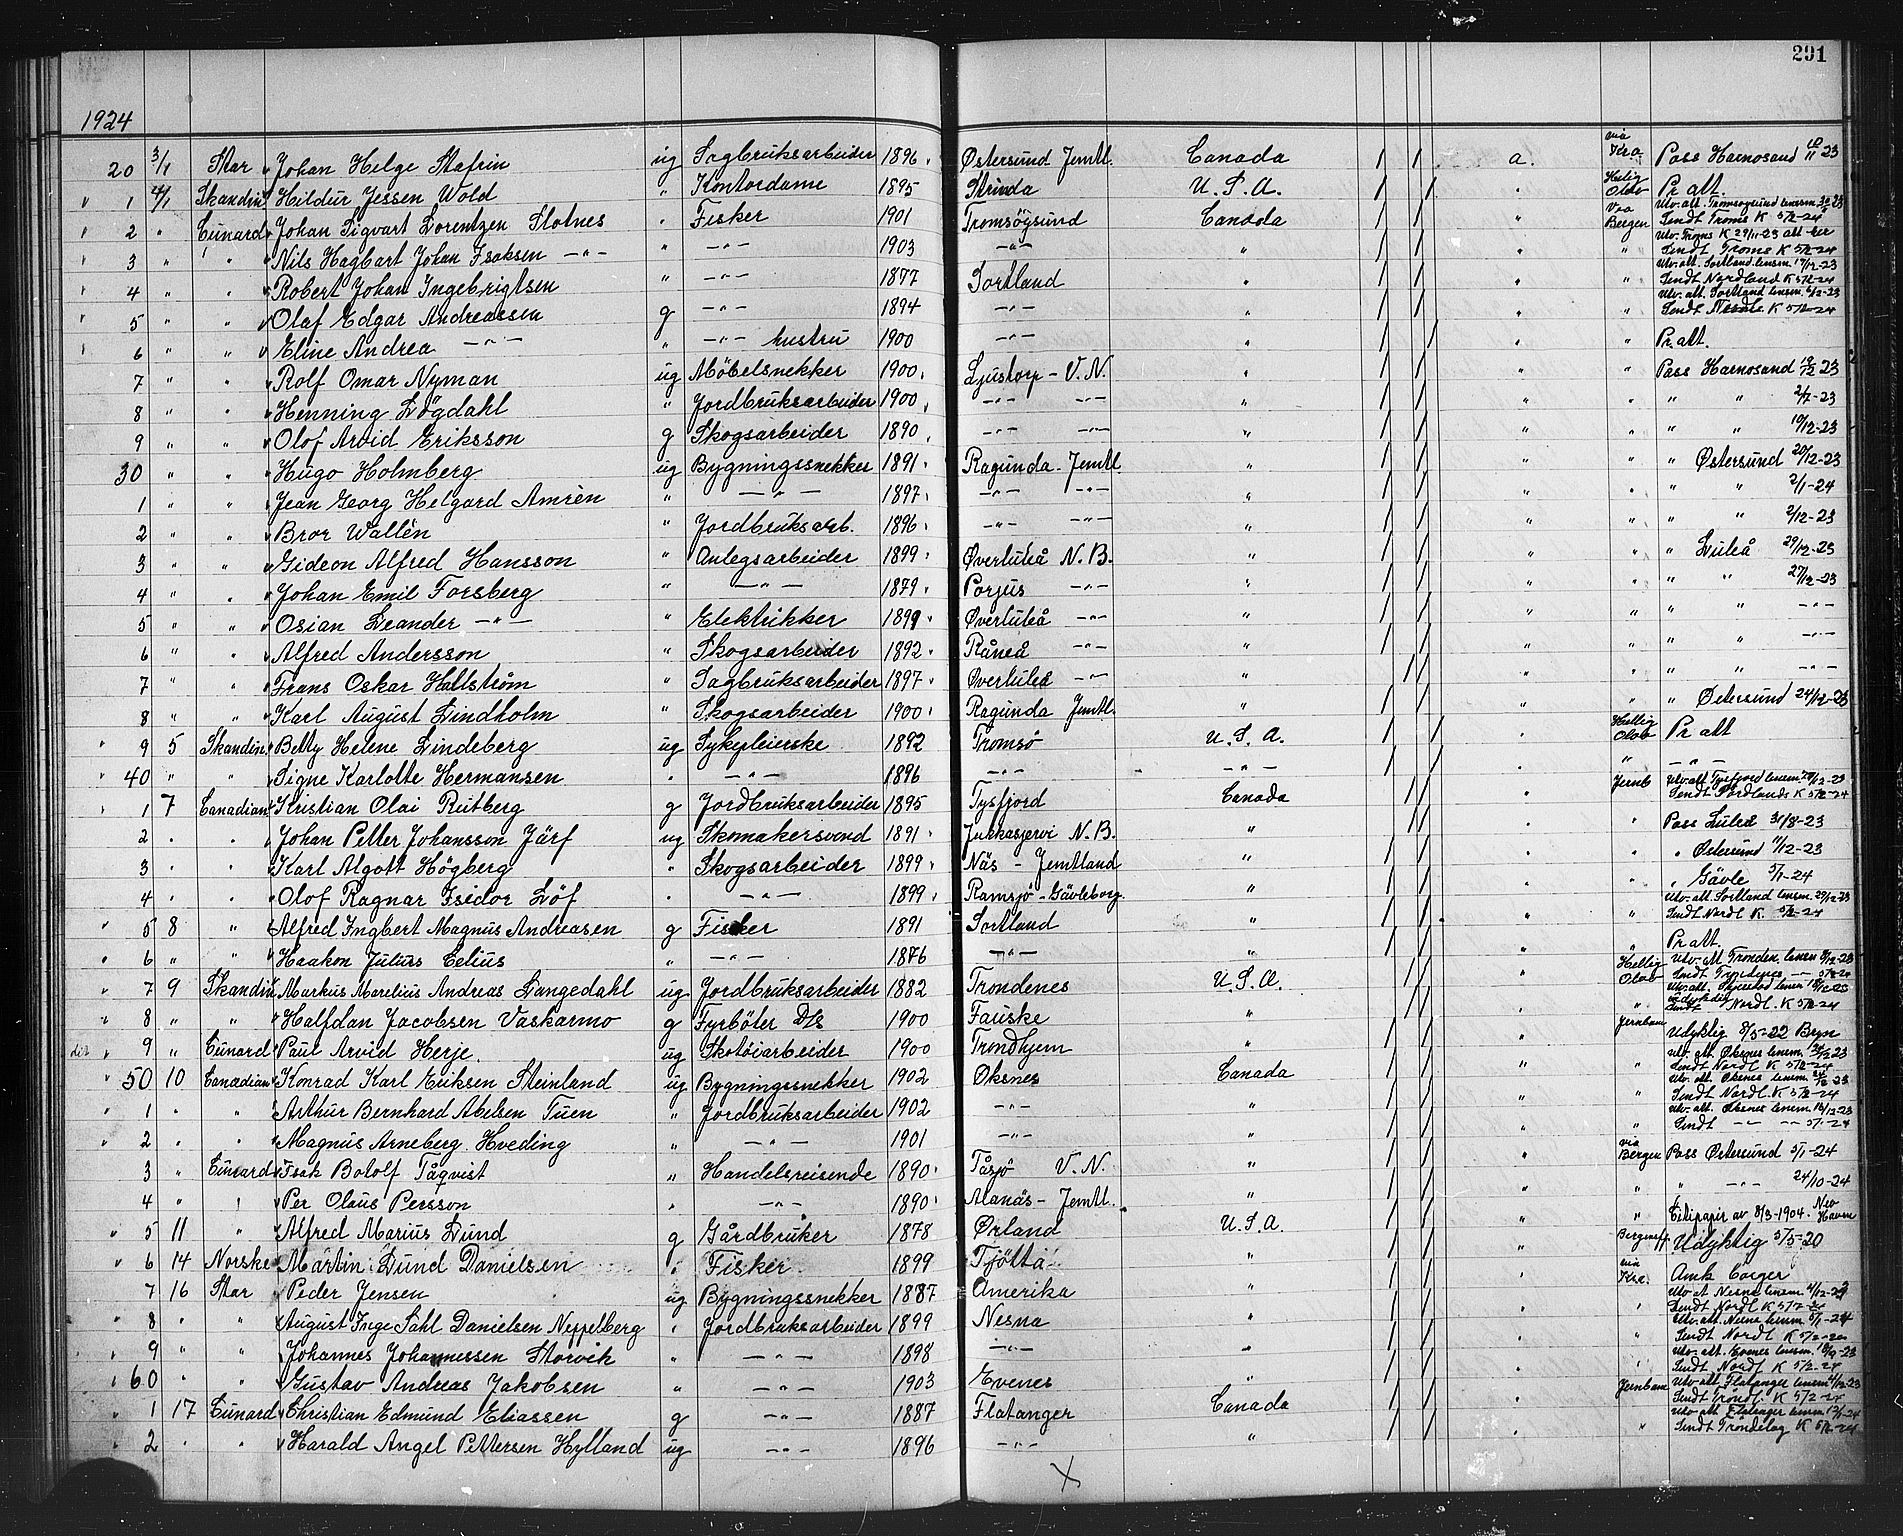 291
1924
20 3/1 Star " Johan Helge Stafrin ug Sagbruksarbeider 1896 Østersund Jemtl. Canada / / a. via Kra Pass Harnosand 10/11 23
" 1 4/1 Skandin " Hildur Jessen Wold " Kontordame 1895 Strinda U.S.A. / / " Hellig Olav Pr att.
" 2 " Cunard " Johan Sigvart Lorentzen Slotnes " Fisker 1901 Tromsöysund Canada / / " Via Bergen Utv. att. Tromsoysund lensm. Sendt Troms K 5/2-24
" 3 " " " Nils Hagbart Johan Isaksen -"- " -"- 1903 -"- " / / " " Utv. Troms K 29/11-23 Sendt Troms K 5/2-24
" 4 " " " Robert Johan Ingebrigtsen " -"- 1877 Sortland " / / " " Utv. att. Sortland lensm. 17/12-23 Sendt Nordland K 5/2-24
" 5 " " " Olaf Edgar Andreassen g -"- 1894 -"- " / / " " Utv. att. Sortland lensm. 5/12-23 Sendt K 5/2-24
" 6 " " " Eline Andrea -"- " -"- hustru 1900 -"- " / / " " Pr. att.
7 " " " Rolf Omar Nyman ug Möbelsnekker 1900 Ljustorp - V.N. " / / " " Pass Harnosand 19/12 23
8 " " " Henning Lögdahl " Jordbruksarbeider 1900 -"- -"- " / / " " " " 2/7-23
9 " " " Olof Arvid Eriksson g Skogsarbeider 1890 -"- -"- " / / " " " " 10/12-23
30 " " " Hugo Holmberg ug Bygningssnekker 1891 Ragunda - Jemtl " / / " " " Østersund 20/12-23
1 " " " Jean Georg Helgard Amrén " -"- 1897 -"- -"- " / / " " " " 2/1-24
2 " " " Bror Wallén " Jordbruksarb. 1896 -"- -"- " / / " " " " 2/12-23
3 " " " Gideon Alfred Hansson " Anlegsarbeider 1899 Øverluleå N.B. " / / " " " Luleå 29/12-23
4 " " " Johan Emil Forsberg " -"- 1879 Porjus -"- " / / " " " " 27/12-23
5 " " " Osian Leander -"- " Elektrikker 1899 Øverluleå -"- " / / " " " " -"-
6 " " " Alfred Andersson " Skogsarbeider 1892 Råneå -"- " / / " " " " -"-
7 " " " Frans Oskar Hallström " Sagbruksarbeider 1897 Øverluleå -"- " / / " " " " -"-
8 " " " Karl August Lindholm " Skogsarbeider 1900 Ragunda Jemtl. " / / " " " Østersund 24/12-23
" 9 5 Skandin. " Betty Helene Lindeberg ug Sykepleierske 1892 Tromsö U.S.A. / / " Hellig Olav Pr att
" 40 " " " Signe Karlotte Hermansen " -"- 1896 -"- -"- / / " " -"-
" 1 7 Canadian " Kristian Olai Reitberg g Jordbruksarbeider 1895 Tysfjord Canada / / " Jernb Utv. att Tysfjord lensm 28/12-23 Sendt Nordlands K 5/2-24
2 " " " Johan Petter Johansson Järf ug Skomakersvend 1891 Jukkasjervi N.B. " / / " " Pass Luleå 31/8-23
3 " " " Karl Algott Högberg " Skogsarbeider 1899 Näs - Jemtland " / / " " " Østersund 11/12-23
4 " " " Olof Ragnar Isidor Löf " -"- 1899 Ramsjö - Gävleborg " / / " " " Gävle 5/1-24
" 5 8 " " Alfred Ingbert Magnus Andreasen g Fisker 1891 Sortland " / / " " Utv. att. Sortland lensm. 29/12-23 Sendt Nordl K. 5/2-24
" 6 " " " Haakon Julius Celius " -"- 1876 -"- " / / " " Pr att.
" 7 9 Skandin " Markus Marelius Andreas Langedahl ug Jordbruksarbeider 1882 Trondenes U.S.A. / / " Hellig Olav Utv. att Tronden. lensm 8/12-23 Sendt Troms -"- 5/2-24
" 8 " " " Halfdan Jacobsen Vaskarmo g Fyrböter D/S 1900 Fauske " / / " " Sendt Nordl. K 5/2-24
" 9 " Cunard " Paul Arvid Herje. ug Skotöiarbeider 1900 Trondhjem " / / " Jernbane Udyktig 8/5-22 Bryn
" 50 10 Canadian " Konrad Karl Eriksen Steinland ug Bygningssnekker 1902 Øksnes Canada / / " " Utv. att Øksnes lensm. 24/12 23 Sendt Nordl K 5/2-24
" 1 " " " Arthur Bernhard Abelsen Tuen " Jordbruksarbeider 1902 -"- " / / " " Utv. att. Øksnes lensm. 24/12-23 Sendt Nordl. K 5/2-24
" 2 " " " Magnus Arneberg Hveding " -"- 1901 -"- " / / " " Utv. att. Øksnes lensm. 18/12-23 Sendt -"- -"- 5/1-24
3 " Cunard " Isak Botolf Tåqvist " Handelsreisende 1890 Tåsjö V.N. " / / " via Bergen Pass Østersund 5/1-24
4 " " " Per Olaus Persson " -"- 1890 Alanäs - Jemtl. " / / " " " -"- 24/10-24
" 5 11 " " Alfred Marius Lund g Gårdbruker 1878 Ørland U.S.A. / / " " Citipapir av 8/3-1904. New Haven
" 6 14 Norske " Martin Lund Danielsen " Fisker 1899 Tjötta " / / " Bergensfj Udyktig 5/5-20
7 16 Star " Peder Jensen ug Bygningssnekker 1887 Amerika " / / " via Kra. Amk Borger
" 8 " " " August Inge Dahl Danielsen Neppelberg " Jordbruksarbeider 1899 Nesna " / / " " Utv at Nesna lensm 4/12-23 Sendt Nordl K 5/2-24
" 9 " " " Johannes Johannessen Storvik " -"- 1898 -"- " / / " " Utv. att. Nesna lensm. 5/1-24 Sendt Nordl K 5/2-24
" 60 " " " Gustav Andreas Jakobsen " -"- 1903 Evenes " / / " " Utv. att. Evenes lensm. 18/9-23 Sendt Nordl K 5/2-24
" 1 17 Cunard " Christian Edmund Eliassen g -"- 1887 Flatanger Canada / / " Jernbane Utv att Flatanger lensm 4/12-23 Sendt Tröndl. K 5/2-24
" 2 " " " Harald Angel Pettersen Hylland ug -"- 1896 -"- " / / " " Utv att Flatanger lensm 12/1-24 Sendt Tröndelag K 5/2-24
X